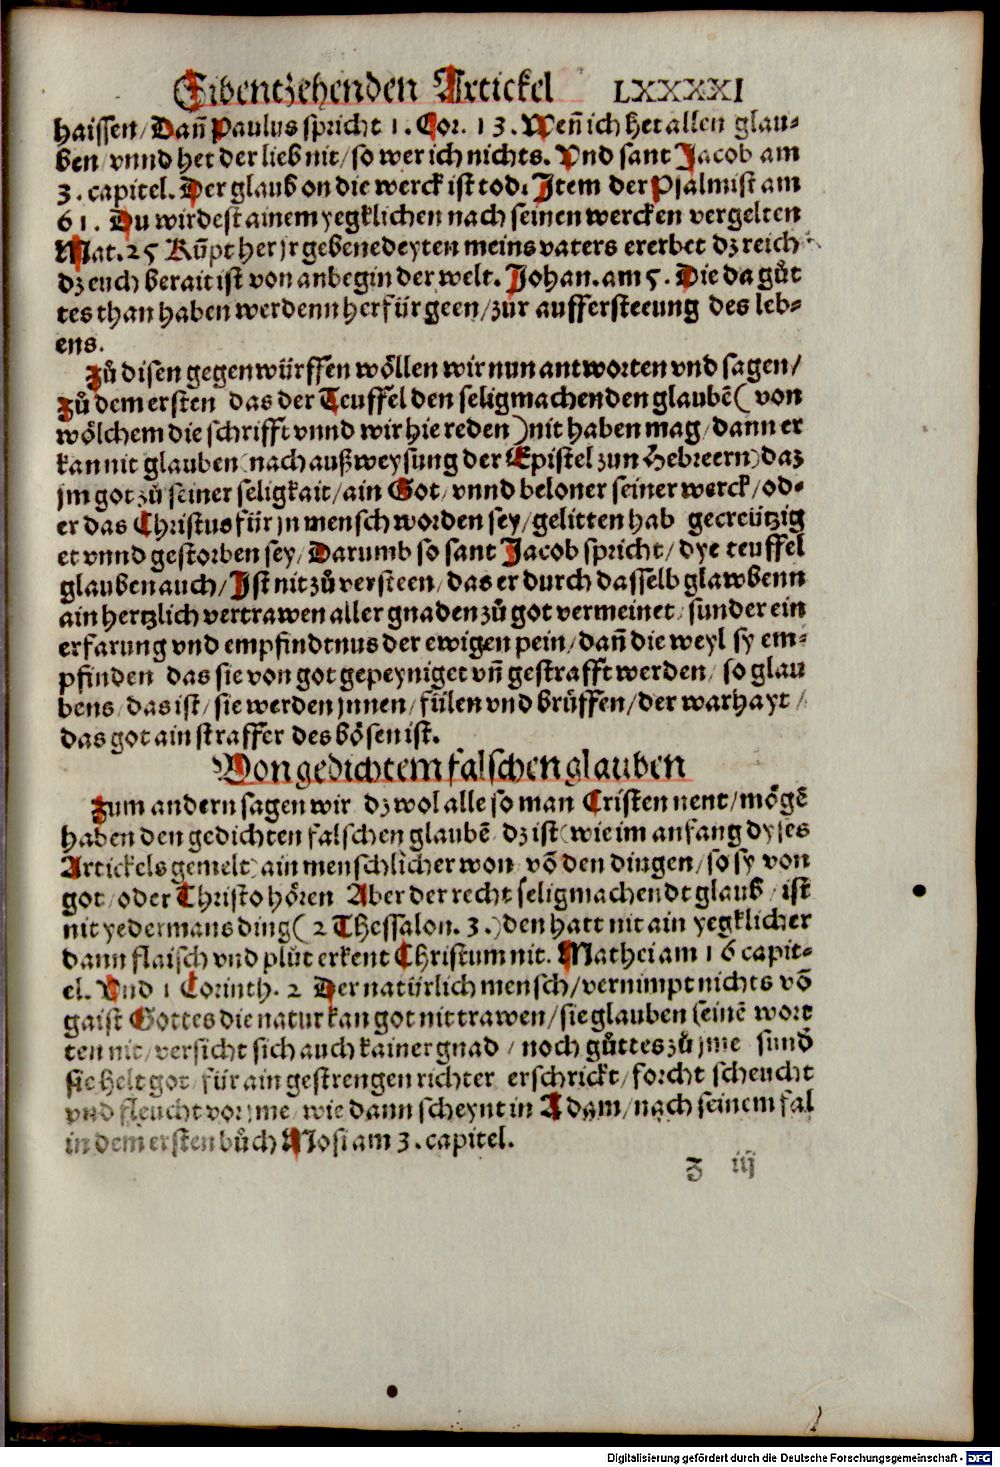 Sibentzehenden Artickel LXXXXI
haissen/ Dañ Paulus spricht 1. Cor. 13. Weñ ich het allen glau-
ben/ vnnd het der lieb nit/ so wer ich nichts. Vnd sant Jacob am
3. capitel. Der glaub on die werck ist tod. Item der Psalmist am
61. Du wirdest ainem yegklichen nach seinen wercken vergelten
Mat. 25 Kũpt her jr gebenedeyten meins vaters ererbet dz reich
dz euch berait ist von anbegin der welt. Johan. am 5. Die da gůt
tes than haben werdenn herfür geen/ zůr auffersteeung des leb-
ens.
Zů disen gegenwürffen wöllen wir nun antworten vnd sagen/
Zů dem ersten das der Teuffel den seligmachenden glaubẽ (von
wölchem die schrifft vnnd wir hie reden) nit haben mag/ dann er
kan nit glauben (nach außweysung der Epistel zun Hebreern) daz
jm got zů seiner seligkait/ ain Got/ vnnd beloner seiner werck/ od-
er das Christus für jn mensch worden sey/ gelitten hab gecreützig
et vnnd gestorben sey/ Darumb so sant Jacob spricht/ dye teuffel
glauben auch/ Ist nit zů versteen/ das er durch dasselb glawbenn
ain hertzlich vertrawen aller gnaden zů got vermeinet/ sunder ein
erfarung vnd empfindtnus der ewigen pein/ dañ die weyl sy em-
pfinden das sie von got gepeyniget vñ gestrafft werden/ so glau
bens/ das ist/ sie werden jnnen/ fülen vnd brüffen/ der warhayt/
das got ain straffer des bösen ist.
Von gedichtem falschen glauben
Zum andern sagen wir dz wol alle so man Cristen nent/ mögẽ
haben den gedichten falschen glaubẽ dz ist (wie im anfang dyses
Artickels gemelt) ain menschlicher won võ den dingen/ so sy von
got/ oder Christo hören Aber der recht seligmachendt glaub/ ist
nit yedermans ding (2 Thessalon. 3.) den hatt nit ain yegklicher
dann flaisch vnd plůt erkent Christum nit. Mathei am 16 capit-
el. Vnd 1 Corinth. 2 Der natürlich mensch/ vernimpt nichts võ
gaist Gottes die natur kan got nit trawen/ sie glauben seinẽ wort
ten nit/ versicht sich auch kainer gnad/ noch gůttes zů jme sund
sie helt got/ für ain gestrengen richter erschrickt/ forcht scheucht
vnd fleucht vor jme/ wie dann scheynt in Adam/ nach seinem fal
in dem ersten bůch Mosi am 3. capitel.
Z iij
Digitalisierung gefördert durch die Deutsche Forschungsgemeinschaft - DFG